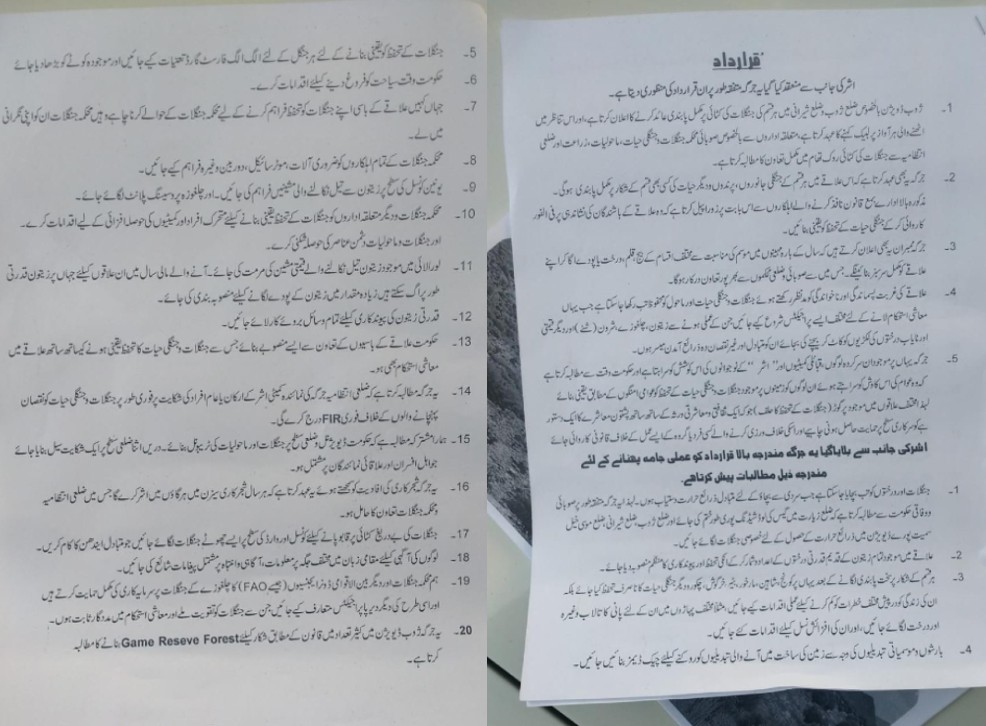 قرارداد
اشر کی جانب سے منعقد کیا گیا یہ جرگہ متفقہ طور پر ان قرارداد کی منظوری دیتا ہے۔
1۔ ژوب ڈویژن بالخصوص ضلع ژوب و ضلع شیرانی میں ہر قسم کی جنگلات کی کٹائی پر مکمل پابندی عائد کرنے کا اعلان کرتا ہے، اور اس تناظر میں
اٹھنے والی ہر آواز پر لبیک کہنے کا عہد کرتا ہے، متعلقہ اداروں سے بالخصوص صوبائی محکمہ جنگلات و جنگلی حیات، ماحولیات، زراعت اور ضلعی
انتظامیہ سے جنگلات کی کٹائی روک تھام میں مکمل تعاون کا مطالبہ کرتا ہے۔
2۔ جرگہ یہ بھی عہد کرتا ہے کہ اس علاقے میں ہر قسم کے جنگلی جانوروں، پرندوں و دیگر حیات کی کسی بھی قسم کے شکار پر مکمل پابندی ہوگی۔
مذکورہ بالا ادارے بمع قانون نافذ کرنے والے اہلکاروں سے اس بابت پر زور اپیل کرتا ہے کہ وہ علاقے کے باشندگان کی نشاندہی پر فی الفور
کاروائی کر کے جنگلی حیات کے تحفظ کو یقینی بنائیں۔
3۔ جرگہ ممبران یہ بھی اعلان کرتے ہیں کہ سال کے بارہ مہینوں میں موسم کی مناسبت سے مختلف اقسام کے بیج قلم و درخت یا پودے اگا کر اپنے
علاقے کو مکمل سرسبز بنائینگے۔ جس میں سے صوبائی ضلعی محکموں سے بھر پور تعاون درکار ہوگا۔
4۔ علاقے کی غربت پسماندگی اور ناخواندگی کو مدنظر رکھتے ہوئے جنگلات و جنگلی حیات اور ماحول کو محفوظ تب رکھا جا سکتا ہے جب یہاں
معاشی استحکام لانے کے لئے مختلف ایسے پراجیکٹس شروع کیے جائیں جن کے عملی ہونے سے زیتون، چلغوزے، شرون (شنے) اور دیگر قیمتی
اور نایاب درختوں کی لکڑیوں کو کاٹ کر بیچنے کی بجائے ان کو متبادل اور غیر نقصان دہ ذرائع آمدن میسر ہوں۔
5۔ جرگہ یہاں پر موجود ان سرکردہ لوگوں، قبائلی کمیٹیوں اور "اشر" کے نوجوانوں کی اس کوشش کو سراہتا ہے اور حکومت وقت سے مطالبہ کرتا ہے
کہ وہ عوام کی اس کاوش کو سراہتے ہوئے ان لوگوں کو زمینوں پر موجود جنگلات و جنگلی حیات کے تحفظ کو عوامی امنگوں کے مطابق یقینی بنائے
لہٰذا مختلف علاقوں میں موجود پرکوڑ (جنگلات کے تحفظ کا حلف) جو کہ ایک ثقافتی و معاشرتی ورثہ کے ساتھ ساتھ پشتون معاشرے کا ایک دستور
ہے کو سرکاری سطح پر حمایت حاصل ہونی چاہیے اور اسکی خلاف ورزی کرنے والے کسی فرد یا گروہ کے ایسے عمل کے خلاف قانونی کاروائی کی جائے
اشر کی جانب سے بلایا گیا یہ جرگہ مندرجہ بالا قرارداد کو عملی جامہ پہنانے کے لئے
مندرجہ ذیل مطالبات پیش کرتا ہے۔
1۔ جنگلات اور درختوں کو تب بچایا جا سکتا ہے جب سردی سے بچاؤ کے لئے متبادل ذرائع حرارت دستیاب ہوں۔ لہٰذا یہ جرگہ متفقہ طور پر صوبائی
و وفاقی حکومت سے مطالبہ کرتا ہے کہ ضلع زیارت میں گیس کی لوڈ شیڈنگ پوری طور ختم کی جائے اور ضلع ژوب، ضلع شیرانی، ضلع موسیٰ خیل
سمیت پورے ڈویژن میں ذرائع حرارت کے حصول کے لئے خصوصی جنگلات لگائے جائیں۔
2۔ علاقے میں موجود تمام زیتون کے قدیم قدرتی درختوں کے اعداد و شمار کر کے انکی تحفظ اور پیوند کاری کا منظم منصوبہ دیا جائے۔
3۔ ہر قسم کے شکار پر سخت پابندی لگانے کے بعد یہاں پر کونج، شاہین، مارخور، تیتر، خرگوش، چکور و دیگر جنگلی حیات کا نا صرف تحفظ کیا جائے بلکہ
ان کی زندگی کو درپیش مختلف خطرات کو کم کرنے کیلئے عملی اقدامات کیے جائیں، مثلاً مختلف پہاڑوں میں ان کے لئے پانی کا تالاب وغیرہ
اور درخت لگائے جائیں، اور ان کی افزائش نسل کیلئے اقدامات کئے جائیں۔
4۔ بارشوں و موسمیاتی تبدیلیوں کی وجہ سے زمین کی ساخت میں آنے والی تبدیلیوں کو روکنے کیلئے چیک ڈیمز بنائیں جائیں۔
5۔ جنگلات کے تحفظ کو یقینی بنانے کے لئے ہر جنگل کے لئے الگ الگ فارسٹ گارڈ تعینات کیے جائیں اور موجودہ کوٹے کو بڑھا دیا جائے
6۔ حکومت وقت سیاحت کو فروغ دینے کیلئے اقدامات کرے۔
7۔ جہاں کہیں علاقے کے باسی اپنے جنگلات کو تحفظ فراہم کرنے کے لیے محکمہ جنگلات کے حوالے کرنا چاہے وہیں محکمہ جنگلات ان کو اپنی نگرانی
میں لے۔
8۔ محکمہ جنگلات کے تمام اہلکاروں کو ضروری آلات، موٹر سائیکل، دوربین وغیرہ فراہم کیے جائیں۔
9۔ یونین کونسل کی سطح پر زیتون سے تیل نکالنے والی مشینیں فراہم کی جائیں۔ اور چلغوزہ پروسیسنگ پلانٹ لگائے جائے۔
10۔ محکمہ جنگلات و دیگر متعلقہ اداروں کو جنگلات کے تحفظ یقینی بنانے کیلئے متحرک افراد اور کمیٹیوں کی حوصلہ افزائی کے لیے اقدامات کرے۔
اور جنگلات و ماحولیات دشمن عناصر کی حوصلہ شکنی کرے۔
11۔ لورالائی میں موجود زیتون تیل نکالنے والے قیمتی مشین کی مرمت کی جائے۔ آنے والے مالی سال میں ان علاقوں کیلئے جہاں پر زیتون قدرتی
طور پر اگ سکتے ہیں زیادہ مقدار میں زیتون کے پودے لگانے کیلئے منصوبہ بندی کی جائے۔
12۔ قدرتی زیتون کی پیوند کاری کیلئے تمام وسائل بروئے کار لائے جائیں۔
13۔ حکومت علاقے کے باسیوں کے تعاون سے ایسے منصوبے بنائے جس سے جنگلات و جنگلی حیات کا تحفظ یقینی ہونے کیساتھ ساتھ علاقے میں
معاشی استحکام بھی ہو۔
14۔ یہ جرگہ مطالبہ کرتا ہے کہ ضلعی انتظامیہ جرگہ کی نمائندہ کمیٹی اشر کے ارکان یا عام افراد کی شکایت پر فوری طور پر جنگلات و جنگلی حیات کو نقصان
پہنچانے والوں کے خلاف فوری FIR درج کرے گی۔
15۔ ہمارا مشترکہ مطالبہ ہے کہ حکومت ڈویژنل و ضلعی سطح پر جنگلات اور ماحولیات کی ٹریبونل بنائے۔ دریں اثنا ضلعی سطح پر ایک شکایت سیل بنایا جائے
جو اہل افسران اور علاقائی نمائندگان پر مشتمل ہو۔
16۔ یہ جرگہ شجر کاری کی افادیت کو سمجھتے ہوئے یہ عہد کرتا ہے کہ ہر سال شجر کاری سیزن میں ہر گاؤں میں اشر کرے گا جس میں ضلعی انتظامیہ
و محکمہ جنگلات تعاون کا حامل ہو۔
17۔ جنگلات کی بے دریغ کٹائی پر قابو پانے کیلئے کونسل اور وارڈ کی سطح پر ایسے چھوٹے جنگلات لگائے جائیں جو متبادل ایندھن کا کام کریں۔
18۔ لوگوں کی آگہی کیلئے مقامی زبان میں مختلف جگہ پر معلومات، آگاہی و انتباہ پر مشتمل پیغامات شائع کی جائیں۔
19۔ ہم محکمہ جنگلات اور دیگر بین الاقوامی ڈونر ایجنسیوں (جیسے FAO) کا چلغوزے کے جنگلات پر سرمایہ کاری کی مکمل حمایت کرتے ہیں
اور اسی طرح کی دیگر دیر پا پراجیکٹس متعارف کیے جائیں جن سے جنگلات کو تقویت ملے اور معاشی استحکام میں مددگار ثابت ہوں۔
20۔ یہ جرگہ ژوب ڈویژن میں کثیر تعداد میں قانون کے مطابق شکار کیلئے Game Reseve Forest بنانے کا مطالبہ
کرتا ہے۔